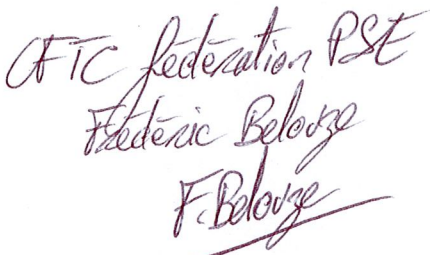 CFTC fédération PSE
Frédéric Belouze
F. Belouze